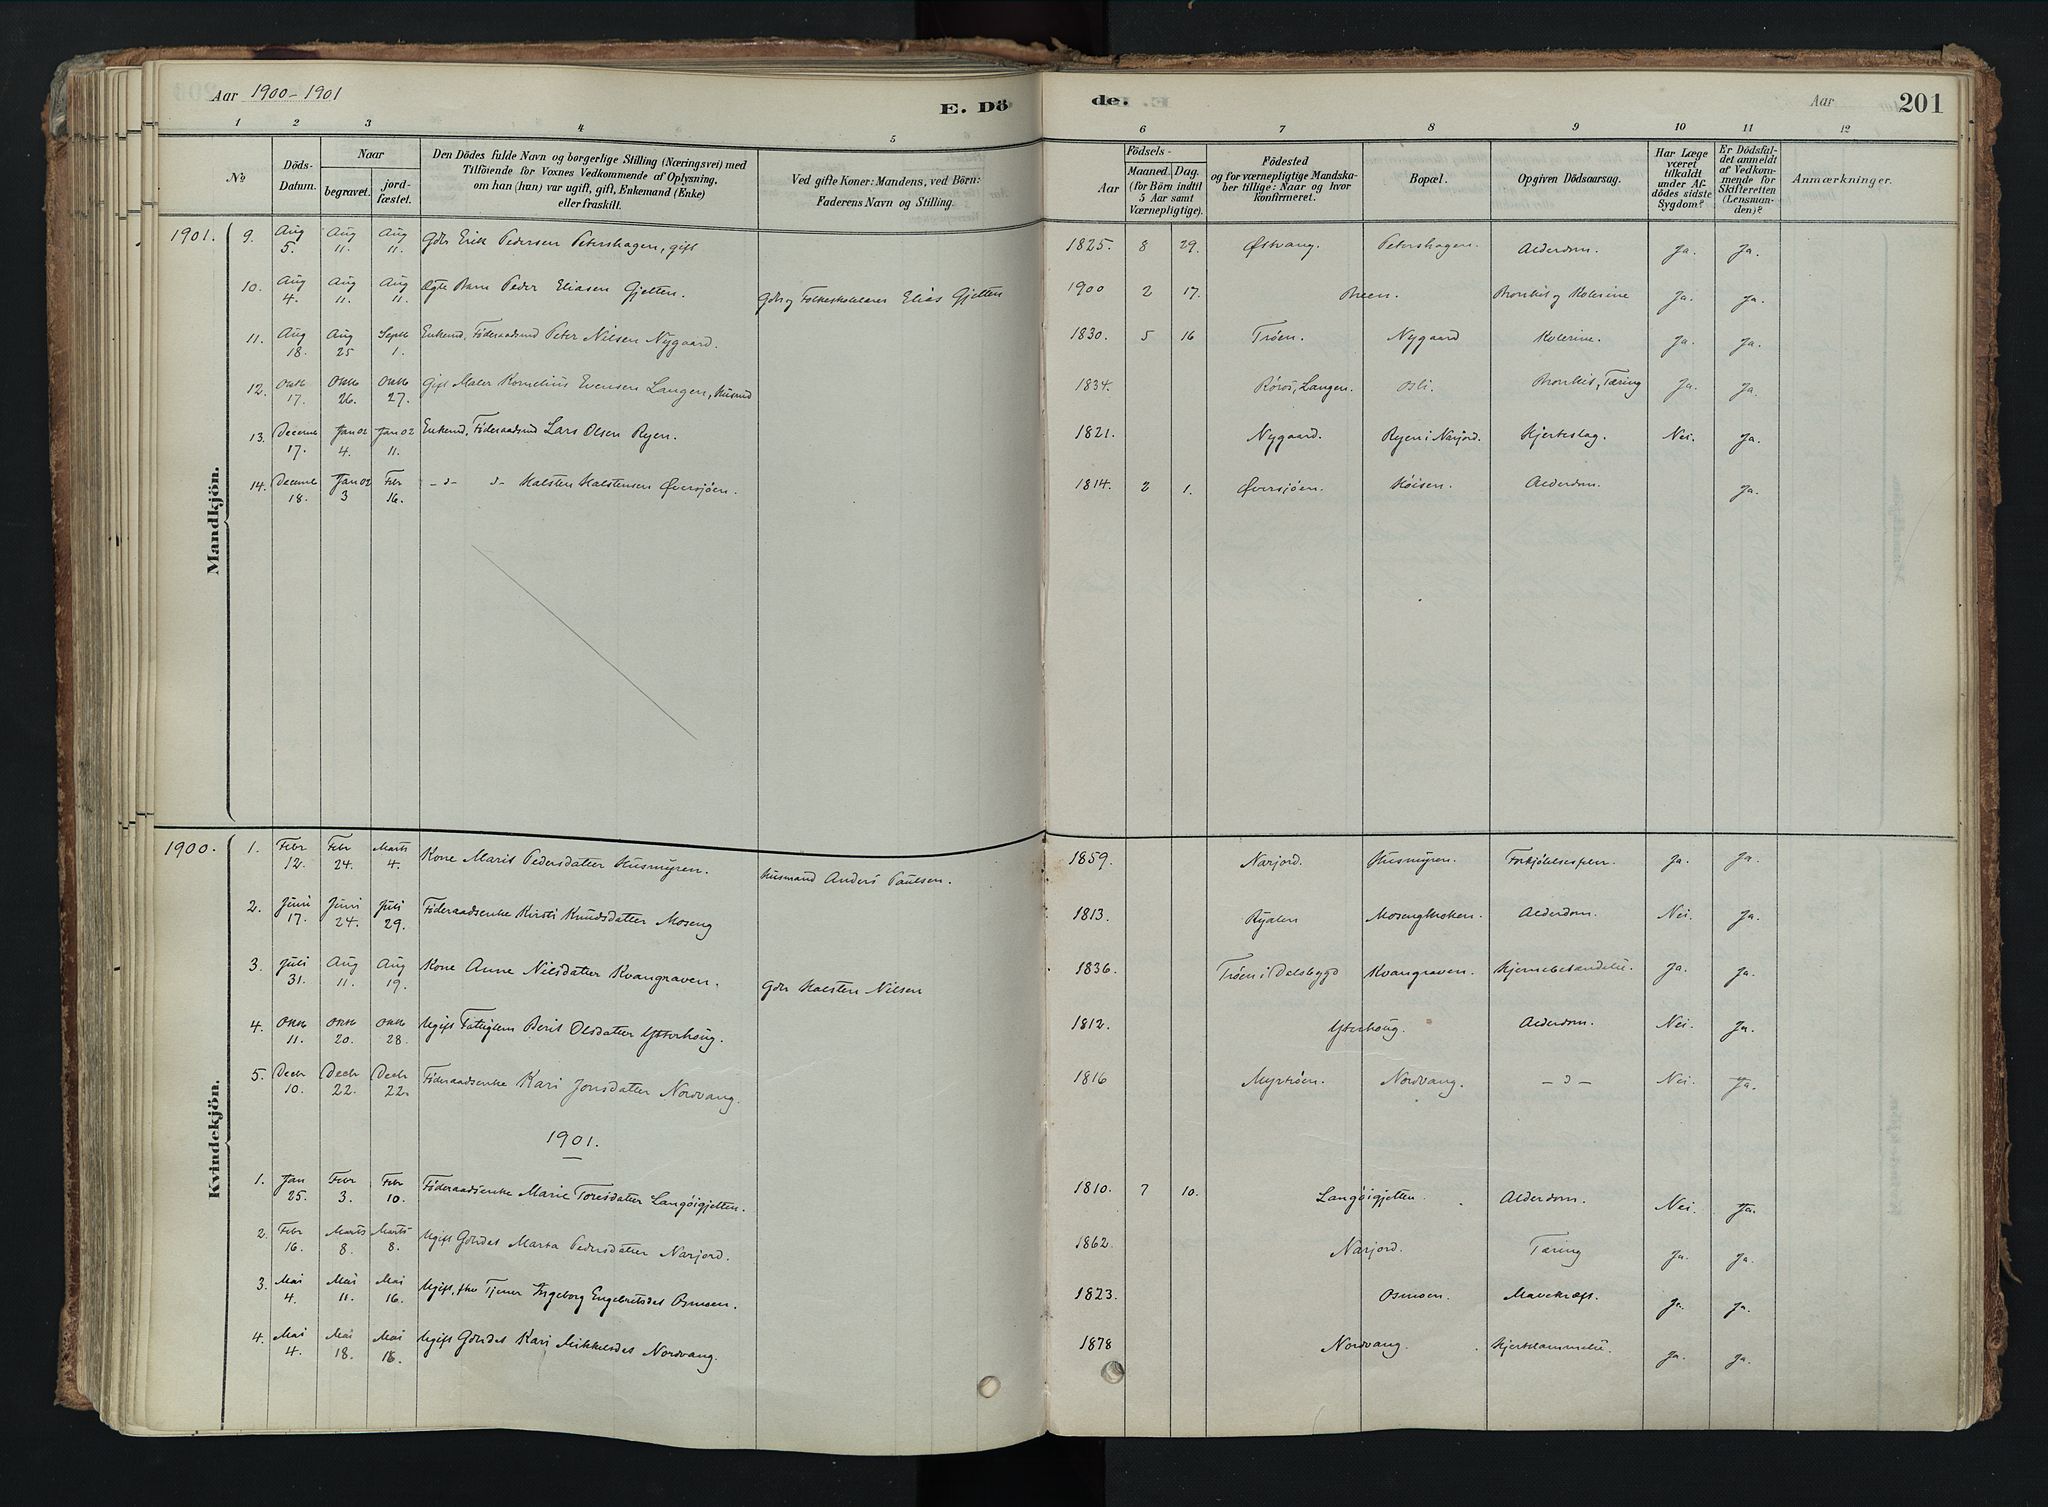 Aar 1900-1901
E. Döde.
Aar 201
1 2 3 4 5 6 7 8 9 10 11 12
№
Döds-Datum.
Naar
begravet.
jord-fæstet.
Den Dödes fulde Navn og borgerlige Stilling (Næringsvei) med
Tilföiende for Voxnes Vedkommende af Oplysning,
om han (hun) var ugift, gift, Enkemand (Enke)
eller fraskilt.
Ved gifte Koner: Mandens, ved Börn:
Faderens Navn og Stilling.
Födsels-
Aar
Maaned. Dag.
(for Börn indtil
5 Aar samt
Værnepligtige).
Födested
og for værnepligtige Mandska-
ber tillige: Naar og hvor
konfirmeret.
Bopæl.
Opgiven Dödsaarsag.
Har Læge
været
tilkaldt
under Af-
dödes sidste
Sygdom?
Er Dödsfal-
det anmeldt
af Vedkom-
mende for
Skifteretten
(Lensman-
den)?
Anmærkninger.
Mandkjön.
1901. 9. Aug 5. Aug 11. Aug 11. Gdbr Erik Pedersen Petershagen, gift 1825. 8 29. Østvang. Petershagen. Alderdom. Ja. Ja.
10. Aug 4. Aug 11. Aug 11. Ægte Barn Peder Eliasen Gjelten. Gdbr og Folkeskolelærer Elias Gjelten 1900 2 17. Breen. Bronkit og Kolerine Ja. Ja.
11. Aug 18. Aug 25 Septb 1. Enkemd, Føderaadsmd Peter Nilsen Nygaard. 1830. 5 16 Trøen. Nygaard Kolerine. Ja. Ja.
12. Oktb 17. Oktb 26. Oktb 27. Gift Maler Kornelius Evensen Langen, Husmd 1834. Røros, Langen. Osli. Bronkit, Tæring Ja. Ja.
13. Decemb 17. Jan 02 4. Jan 02 11. Enkemd, Føderaadsmd Lars Olsen Ryen. 1821. Nygaard. Ryen i Narjord. Hjerteslag. Nei. Ja.
14. Decemb 18. Jan 02 3 Febr 16. -"- "- Halsten Halstensen Øversjøen. 1814. 2 1. Øversjøen. Koisen. Alderdom. Ja.
Kvindekjön.
1900. 1. Febr 12. Febr 24. Marts 4. Kone Marit Pedersdatter Husmyren. Husmand Anders Paulsen. 1859. Narjord. Husmyren. Ja. Ja.
2. Juni 17. Juni 24. Juli 29. Føderaadsenke Kirsti Knudsdatter Moseng 1813. Ryalen Mosengkroken. Alderdom. Nei. Ja.
3. Juli 31. Aug 11. Aug 19. Kone Anne Nilsdatter Kvangraven. Gdbr Halsten Nilsen 1836. Trøen i Dalsbygd Kvangraven. Hjernebetændelse. Ja. Ja.
4. Oktb 11. Oktb 20. Oktb 28. Ugift Fattiglem Berit Olsdatter Ytterhoug. 1812. Ytterhoug. Alderdom. Nei. Ja.
5. Decb 10. Decb 22. Decb 22. Føderaadsenke Kari Jonsdatter Nordvang. 1816 Myrtrøen. Nordvang. -"- Nei. Ja.
1901.
1. Jan 25. Febr 3. Febr 10. Føderaadsenke Marie Toresdatter Langøigjelten. 1810. 7 10. Langøigjelten. Alderdom. Nei. Ja.
2. Febr 16. Marts 8. Marts 8. Ugift Gårdat Marta Pedersdatter Narjord. 1862. Narjord. Tæring Ja. Ja.
3. Mai 4. Mai 11. Mai 16. Ugift, Tjener Ingeborg Engebretsdat Osmoen. 1823. Osmoen. Mavekræft. Ja. Ja.
4. Mai 4. Mai 18. Mai 16. Ugift Gårdat Kari Mikkelsdat Nordvang. 1878 Nordvang. Hjertelammelse. Ja. Ja.